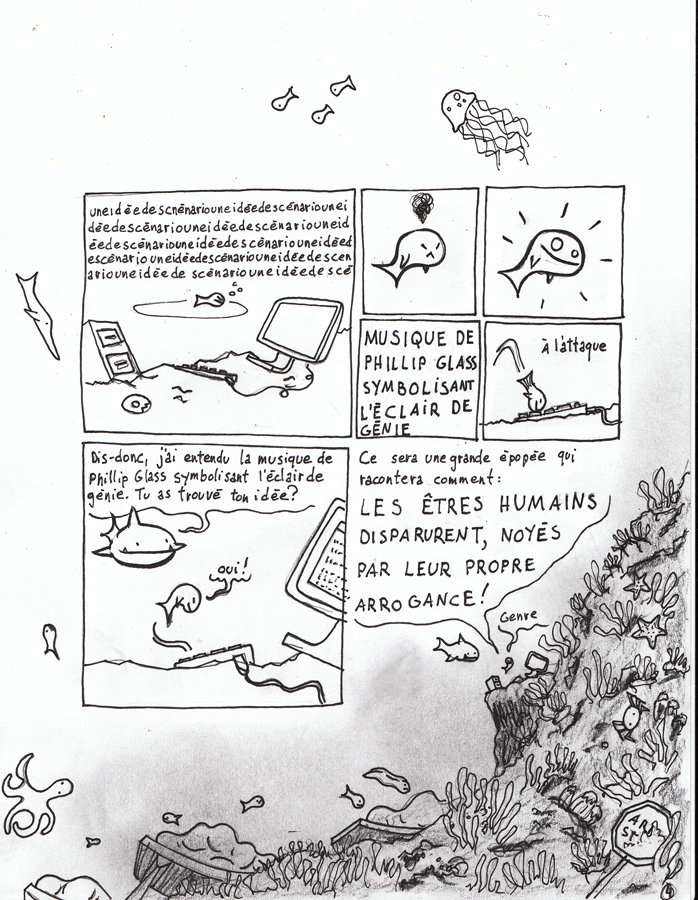 uneidéedescnénariouneidéedescénariounei
déedescénariouneidéedescénariouneid
éedescénariouneidéedescénariouneidéed
escénariouneidéedescénariouneidéedescen
ariouneidéede scénariouneidéedescé
MUSIQUE DE
PHILLIP GLASS
SYMBOLISANT
L'ÉCLAIR DE
GÉNIE
À l'attaque
Dis-donc, j'ai entendu la musique de
Phillip Glass symbolisant l'éclair de
génie. Tu as trouvé ton idée?
oui!
Ce sera une grande épopée qui
racontera comment:
LES ÊTRES HUMAINS
DISPARURENT, NOYÉS
PAR LEUR PROPRE
ARROGANCE!
Genre